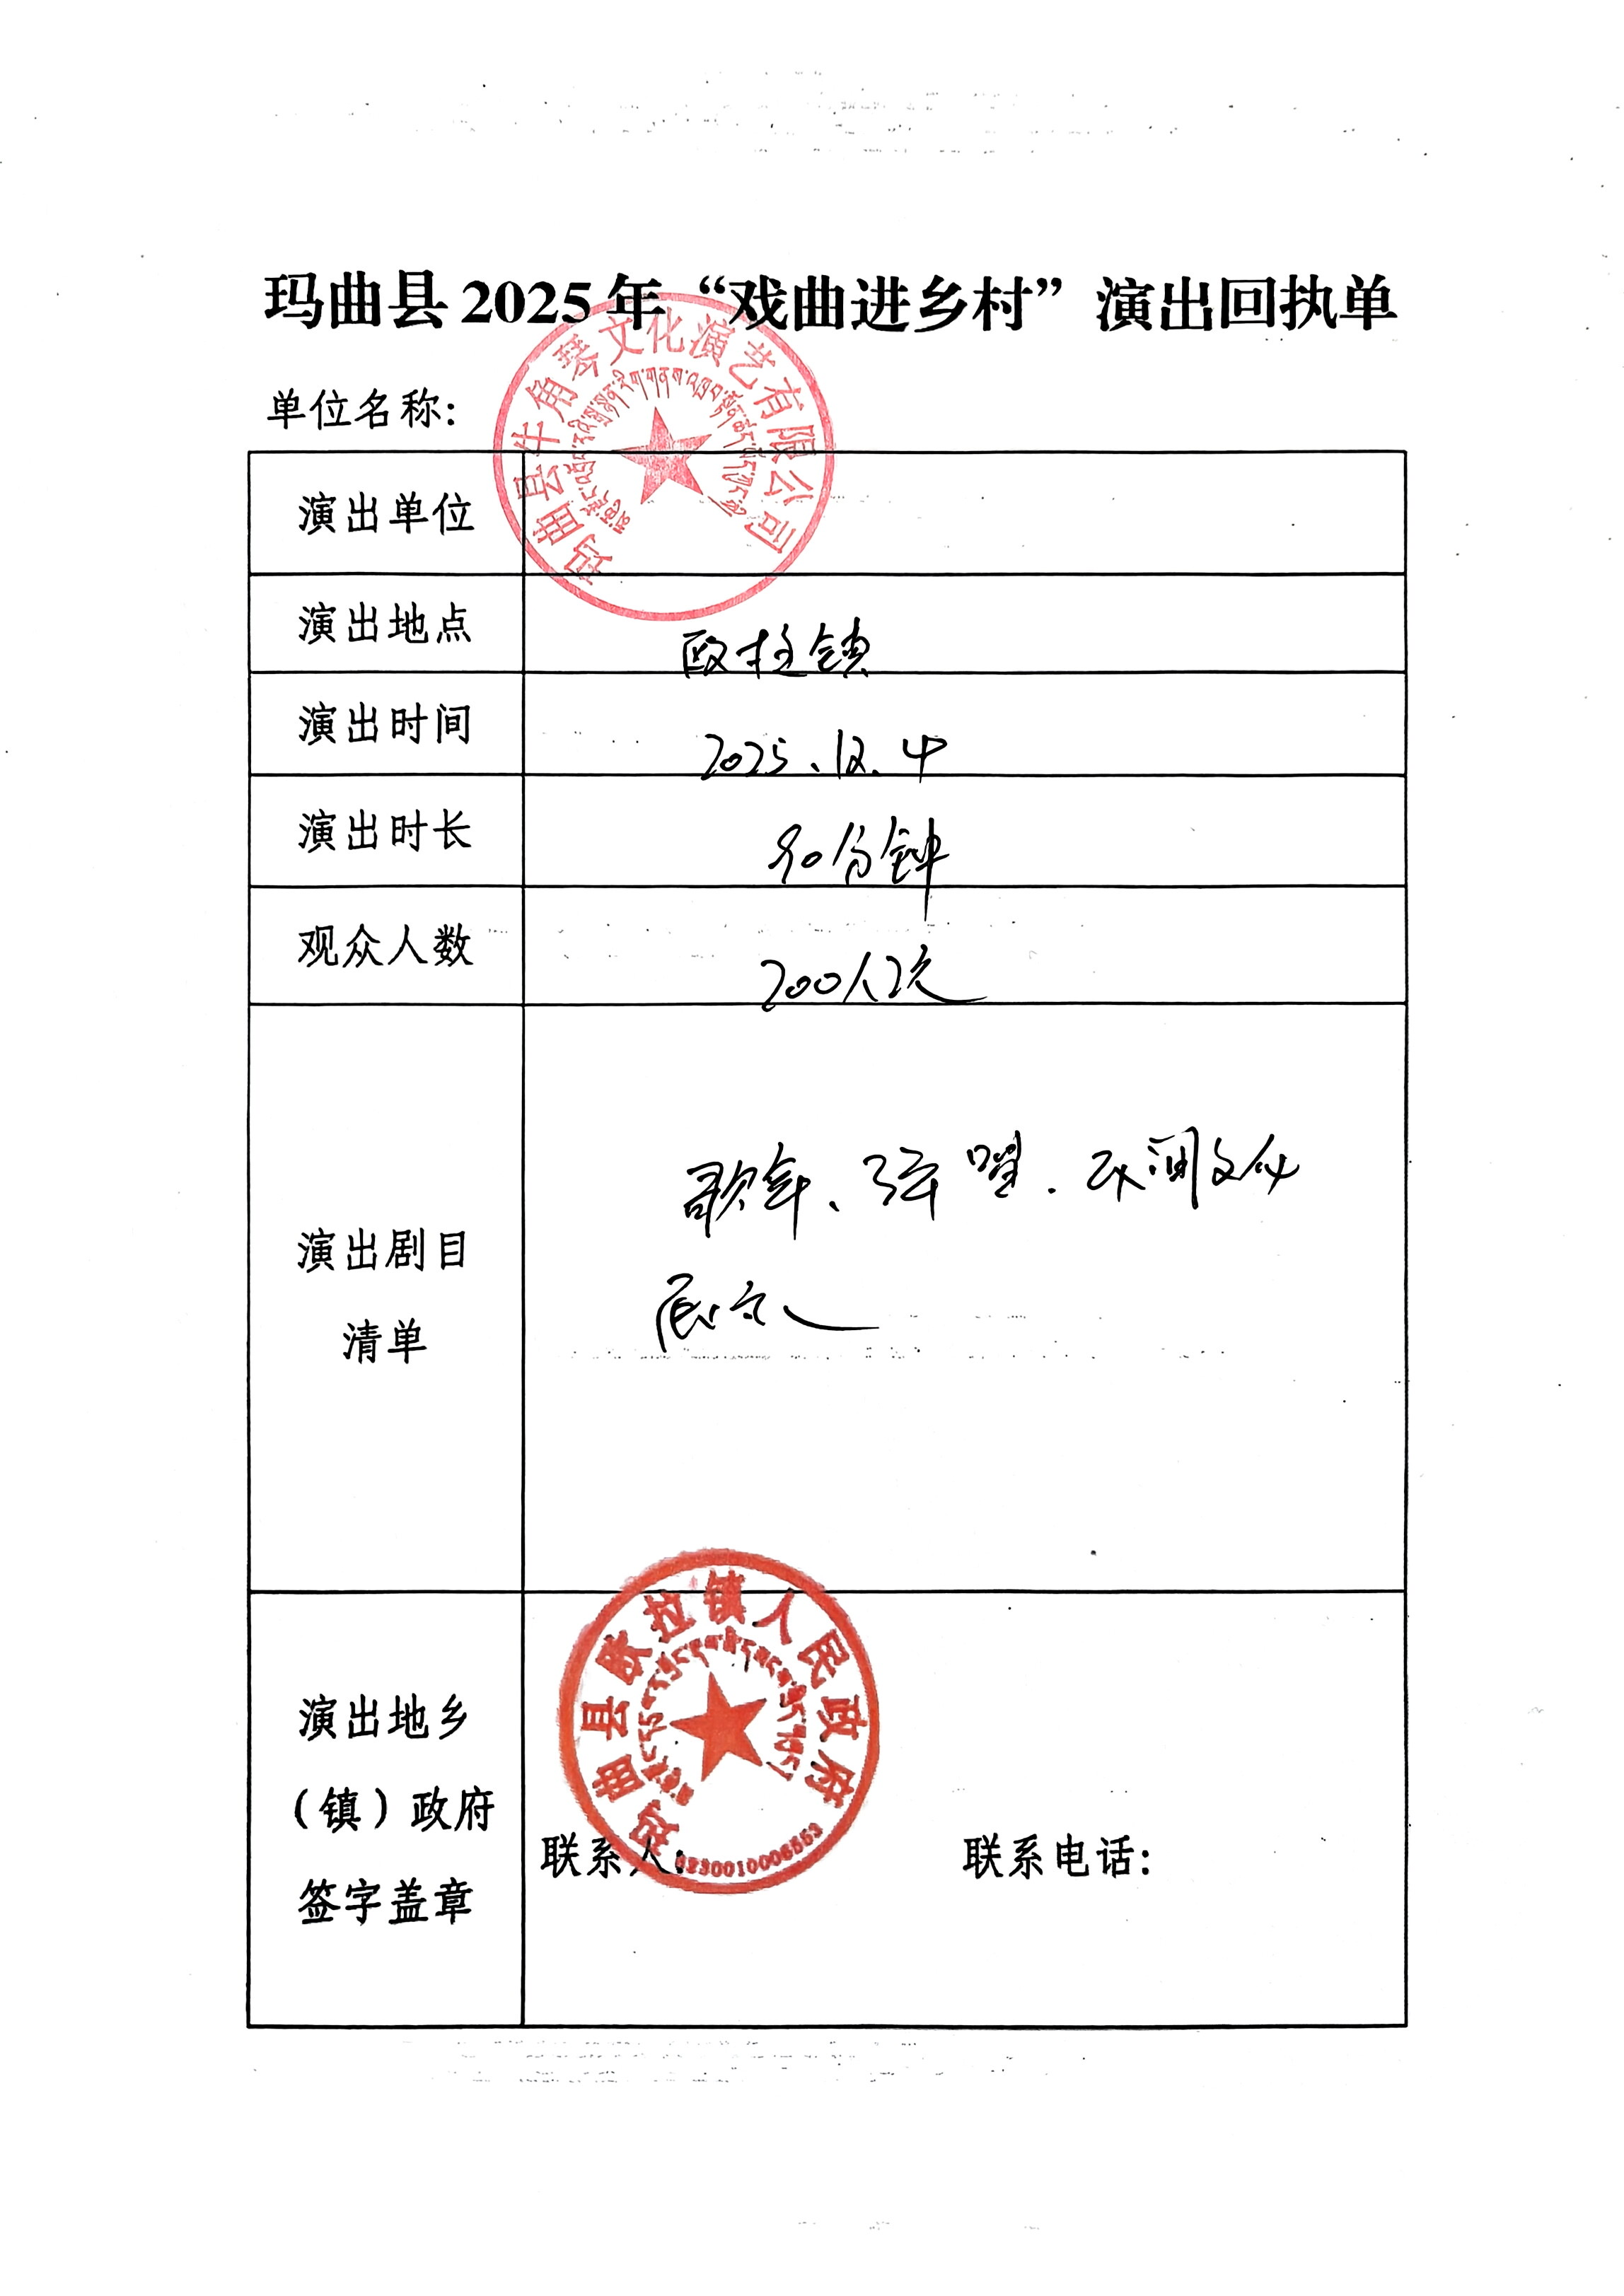 玛曲县2025年“戏曲进乡村”演出回执单
玛曲县牛角琴文化演艺有限公司
单位名称:
演出单位
演出地点
欧拉镇
演出时间
2025.12.4
演出时长
90分钟
观众人数
200人次
演出剧目
清单
歌舞、弹唱.民间文化
展演
演出地乡
(镇)政府
签字盖章
玛曲县欧拉镇人民政府
联系人:
联系电话: